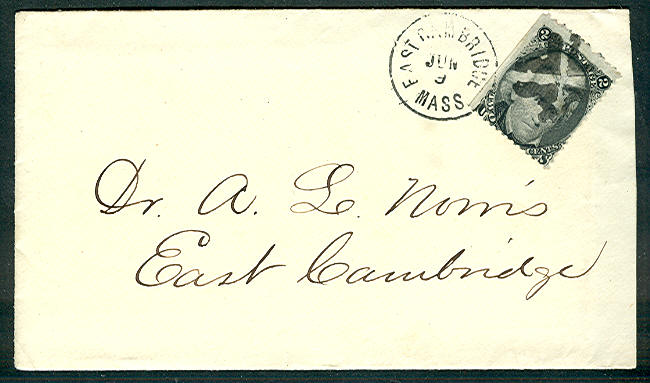 EAST CAMBRIDGE
JUN
9
MASS
2 2
CENTS
Dr. A. L. Norris
East Cambridge